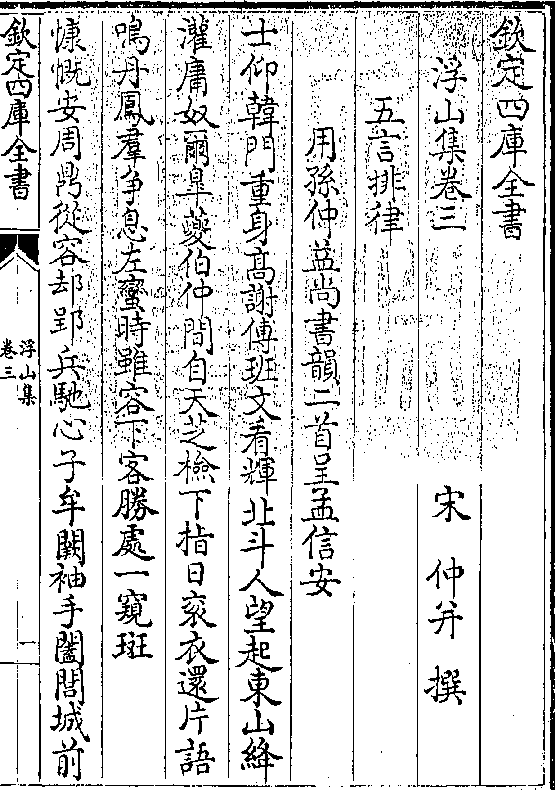 欽定四庫全書
浮山集卷三
宋 仲并 撰
五言排律
用孫仲益尚書韻二首呈孟信安
士仰韓門重身髙謝傅班文看輝北斗人望起東山絳
灌庸奴爾臯夔伯仲間自天芝檢下指日衮衣還片語
鳴丹鳳羣争息左蠻時雖容下客勝處一窺斑
慷慨安周鼎從容却郢兵馳心子牟闕袖手闔閭城前
欽定四庫全書
浮山集
卷三
一